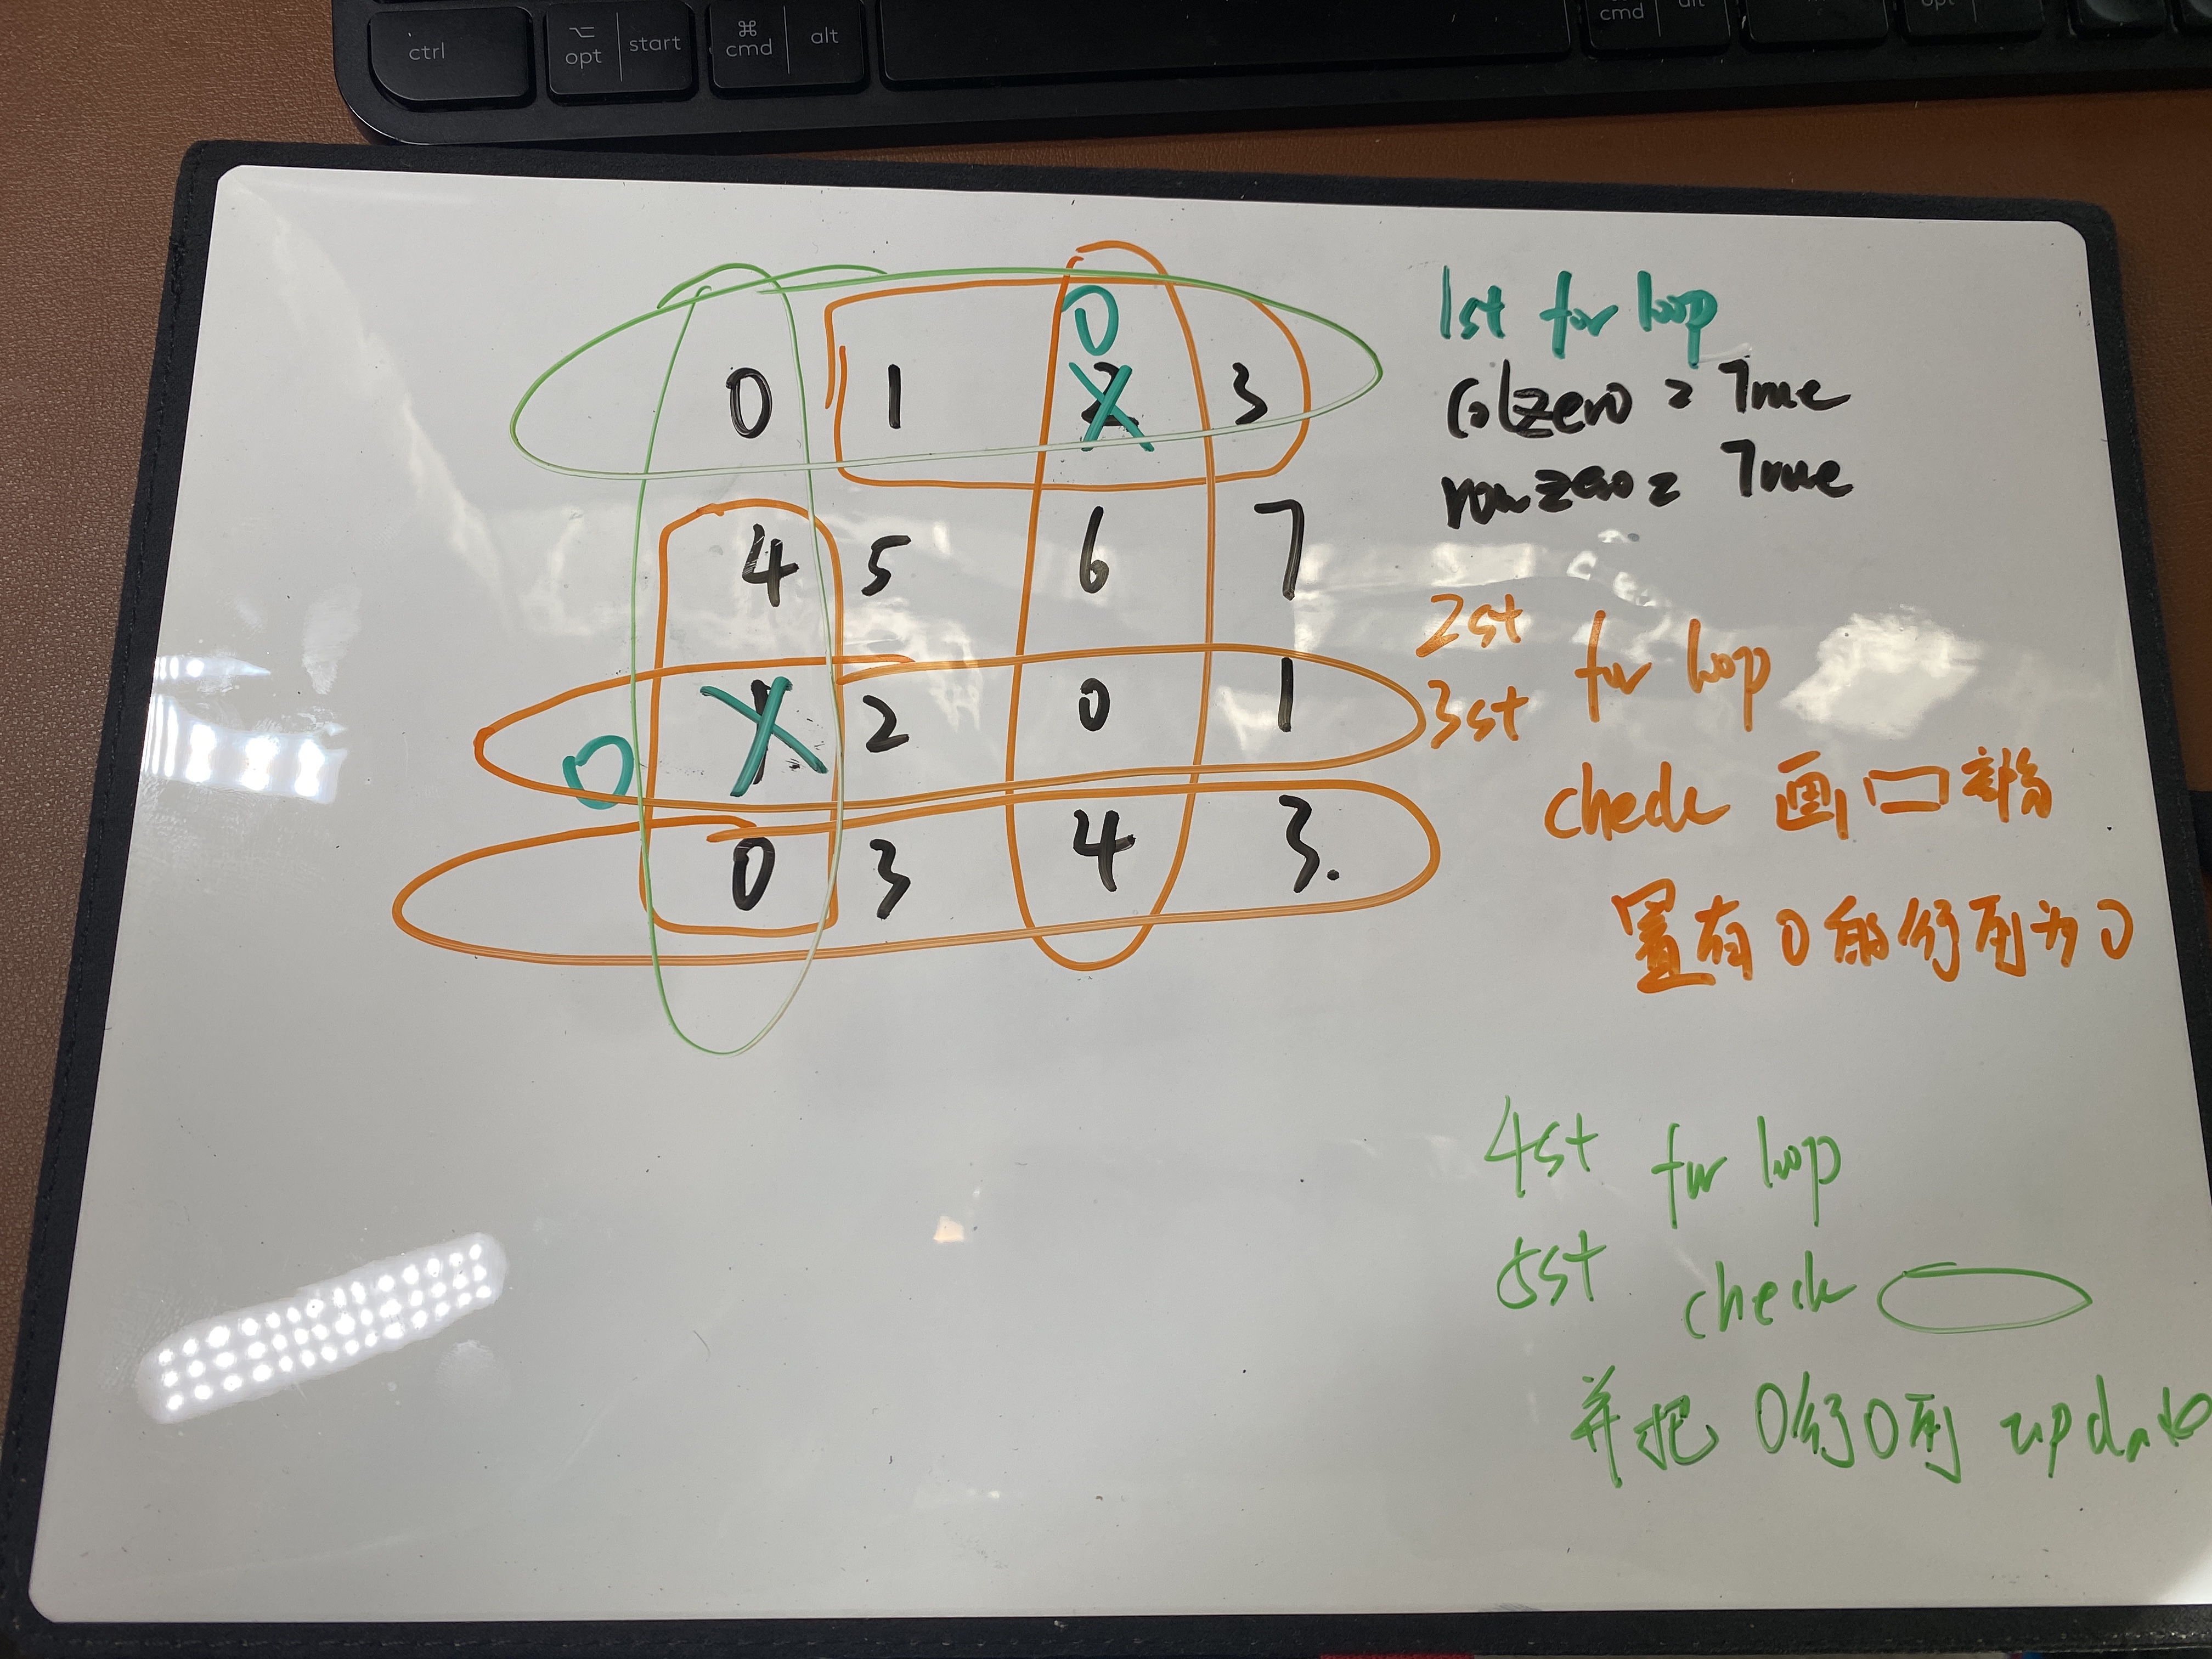 ctrl
opt start
cmd alt
cmd alt
opt
0
0 1 2 3
4 5 6 7
1 2 0 1
0
0 3 4 3.
1st for loop
colzero = True
rowzero = True
2st
3st for loop
check 画口部分
置有0的行列为0
4st for loop
5st check
并把 0行0列 update